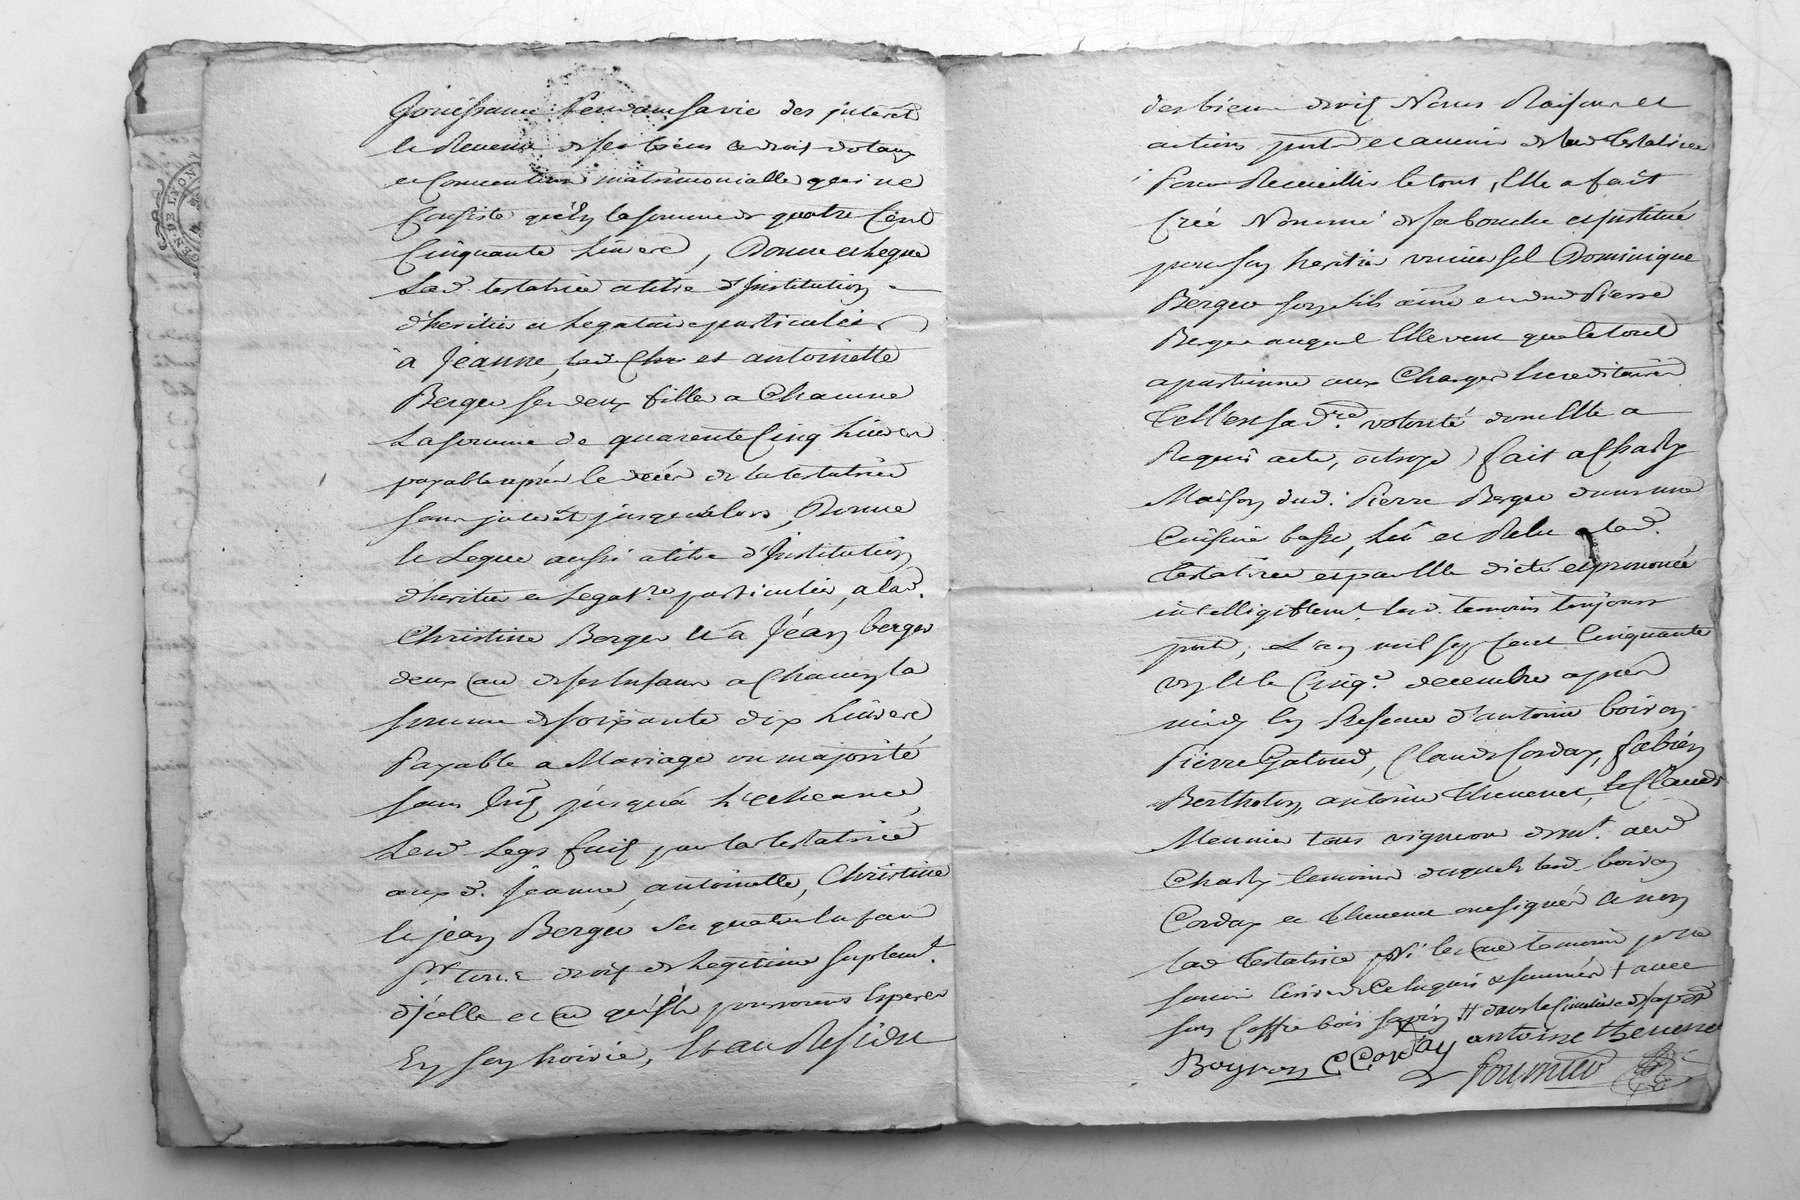 Jouissance Pendant sa vie des jnterêt
le Revenu de ses biens ce droit dotaux
et Convention matrimonialle qui ne
Consiste qu'En la somme de quatre Cent
Cinquante Livres, Donne et legue
Lad. testatrice a titre d'Jnstitution
d'heritie et Legataire particuliere
a Jeanne, et antoinette
Berger ses deux filles a Chacune
La somme de quarente Cinq Livres
payable après le décès de la testatrice
sans jnterêt jusqu'alors, Donne
le Legue aussi a titre d'Jnstitution
d'heritie et Legatre. particulier, a lad.
Christine Berger Et a Jéan berger
deux de ses Enfans a Chacun la
somme de soixante dix Livres
Payable a Mariage ou majorité
sans Jnt. jusqu'a l'echeance,
Lesd. Legs fait par la testatrice
aux d. Jeanne, antoinette, Christine
Et jean Berger ses quatre Enfans
pr. tous droit de Legitime suplemt.
d'jcelle et qu'ils pourroient Esperer
En son hoirie, Et au Residu
des biens droit Noms Raisons et
actions pnts. et avenir de lad testatrice
Pour Recueillir le tout, Elle a fait
Créé Nommé de sa bouche et jnstitué
pour son heritie universel Dominique
Berger son fils ainé et dud Pierre
Berger auquel Elle veut que le tout
apartienne aux Charges hereditaires
Tell'est sa dre. volonté dont Elle a
Requis acte, octroyé, fait a Charly
Maison dud. Pierre Berger dans une
Cuisine basse, Lû et Relu a lad.
testatrice et par Elle dicté et prononcée
intelligiblemt. lesd. temoins toujours
pnts, L'an mil sept Cent Cinquante
un Et le Cinq. decembre après
midy En Presence d'antoine boiron
Pierre Gatoud, Claude Corday, fabién
Bertholon, antoine Thevenet, Et Claude
Meunier tous vigneron demt. aud
Charly temoins desquels lesd. boiron
Corday et Thevenet ont signés et non
lad testatrice Ni les temoins pour ne
savoir Ecrire de ce Enquis et sommés † avec
son Coffre bois sapin ++ dans le
Boyron CCorday antoine thevene
fournier